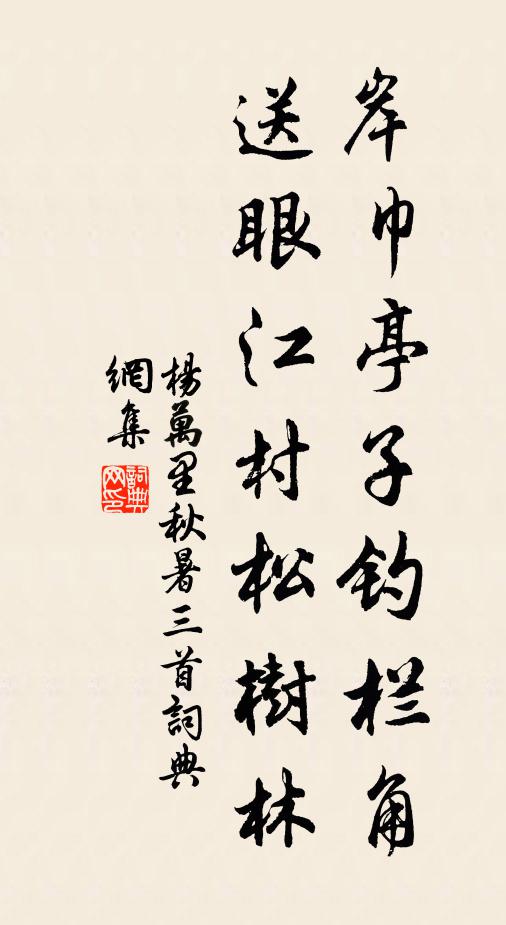 岸巾亭子钓栏角
送眼江村松樹林
楊萬里秋暑三首詞典
網集
詞典網印